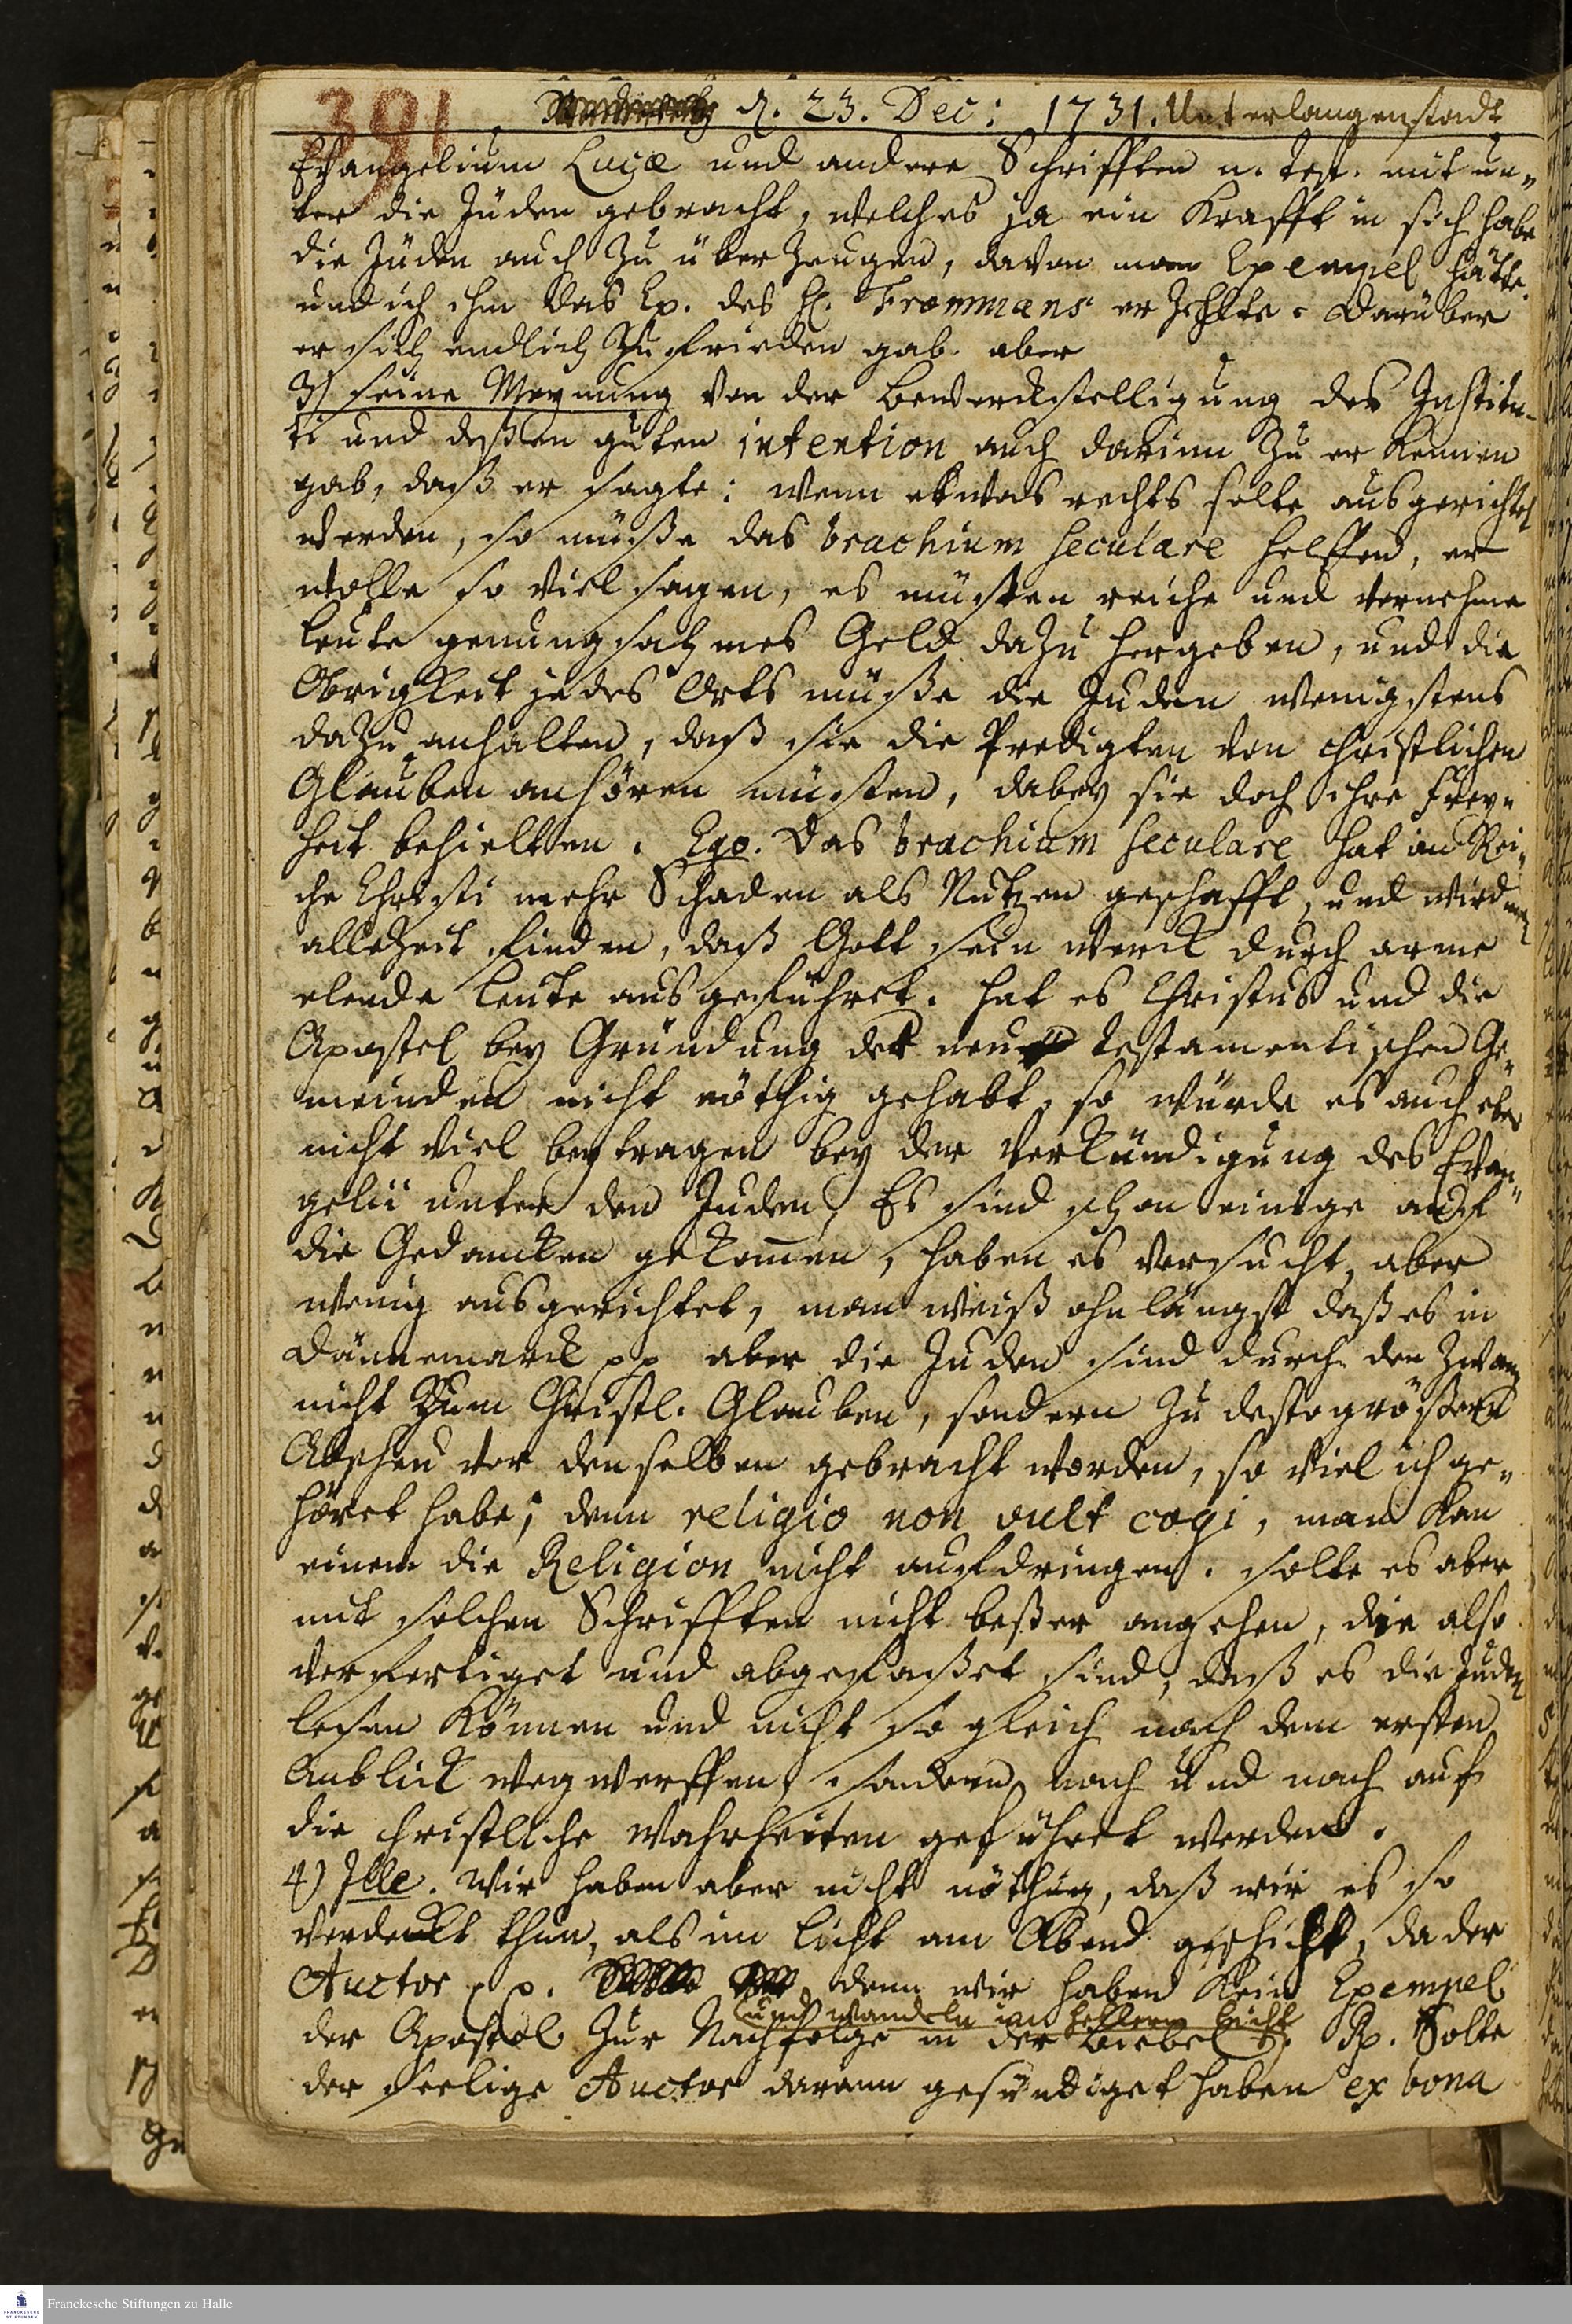 391
d. 23. Dec: 1731. Unterlangenstadt
Evangelium Lucæ und andere Schrifften n. test. mit un-
ter die Juden gebracht, welches ja ein Krafft in sich habe
die Juden auch zu überzeugen, davon man Exempel hätte
und ich ihm das Ex. des H. Frommans erzehlte. Darüber
er sich endlich zufrieden gab. aber
3) seine Meynung von der Bewerckstelligung des Institu-
ti und deßen guten intention auch darinn zu erkennen
gab, daß er sagte: wenn etwas rechts solte ausgerichtet
werden, so müße das brachium seculare helffen, er
wolle so viel sagen, es müsten reiche und vornehme
Leute genungsahmes Geld dazu hergeben, und die
Obrigkeit jedes Orts müße die Juden wenigstens
dazu anhalten, daß sie die Predigten von christlichen
Glauben anhören müsten, dabey sie doch ihre Frey-
heit behielten. Ego. Das brachium seculare hat im Rei-
che Christi mehr Schaden als Nutzen geschafft, und wird man
allezeit finden, daß Gott sein Werck durch arme
elende Leute ausgeführet. hat es Christus und die
Apostel bey Gründung der neu testamentischen Ge-
meinden nicht nöthig gehabt, so würde es auch eben
nicht viel beytragen bey der Verkündigung des Evan-
gelii unter den Juden, Es sind schon einige auf
die Gedancken gekom̄en, haben es versucht, aber
wenig ausgerichtet, man weiß ohnlängst daß es in
Dännemarck pp aber die Juden sind durch den Zwang
nicht zum Christl. Glauben, sondern zu desto größern
Abscheu vor denselben gebracht worden, so viel ich ge-
höret habe; denn religio non vult cogi, man kan
einem die Religion nicht aufdringen. solte es aber
mit solchen Schrifften nicht beßer angehen, die also
verfertiget und abgefaßet sind, daß es die Juden
lesen können und nicht so gleich nach dem ersten
Anblick wegwerffen, sondern nach und nach auf
die christliche Wahrheiten geführet werden.
4) Ille. Wir haben aber nicht nöthig, daß wir es so
verdeckt thun, als im Licht am Abend geschicht, da der
Auctor pp. denn wir haben kein Exempel
und wandeln im hellern Licht
der Apostel zur Nachfolge in der Biebel Rp. Solte
der seelige Auctor daran gesündiget haben ex bona
Franckesche Stiftungen zu Halle